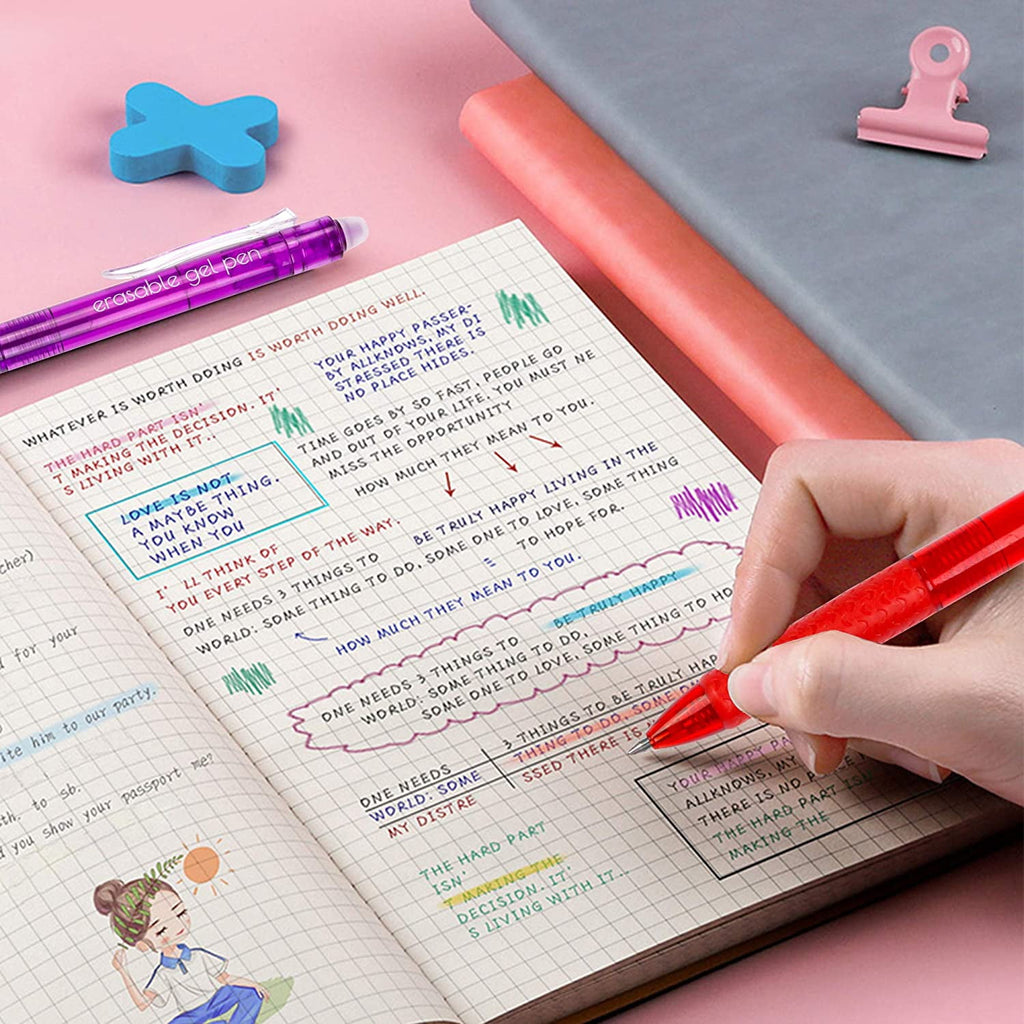 erasable gel pen
WHATEVER IS WORTH DOING IS WORTH DOING WELL.
YOUR HAPPY PASSER-
BY ALLKNOWS, MY DI
STRESSED THERE IS
NO PLACE HIDES.
THE HARD PART ISN'
T MAKING THE DECISION. IT'
S LIVING WITH IT..
TIME GOES BY SO FAST, PEOPLE GO
AND OUT OF YOUR LIFE. YOU MUST NE
MISS THE OPPORTUNITY
HOW MUCH THEY MEAN TO YOU.
LOVE IS NOT
A MAYBE THING.
YOU KNOW
WHEN YOU
I' LL THINK OF
YOU EVERY STEP OF THE WAY.
BE TRULY HAPPY LIVING IN THE
ONE NEEDS 3 THINGS TO
WORLD: SOME THING TO DO, SOME ONE TO LOVE, SOME THING
TO HOPE FOR.
HOW MUCH THEY MEAN TO YOU.
BE TRULY HAPPY
ONE NEEDS 3 THINGS TO
WORLD: SOME THING TO DO,
SOME ONE TO LOVE, SOME THING TO HO
3 THINGS TO BE TRULY HAP
THING TO DO, SOME ON
SSED THERE IS
ONE NEEDS
WORLD: SOME
MY DISTRE
YOUR HAPPY PA
ALLKNOWS, MY
THERE IS NO P
THE HARD PART IS
MAKING THE
THE HARD PART
ISN'
T MAKING THE
DECISION. IT'
S LIVING WITH IT..
cher)
d for your
ite him to our party.
th. to sb.
d you show your passport me?